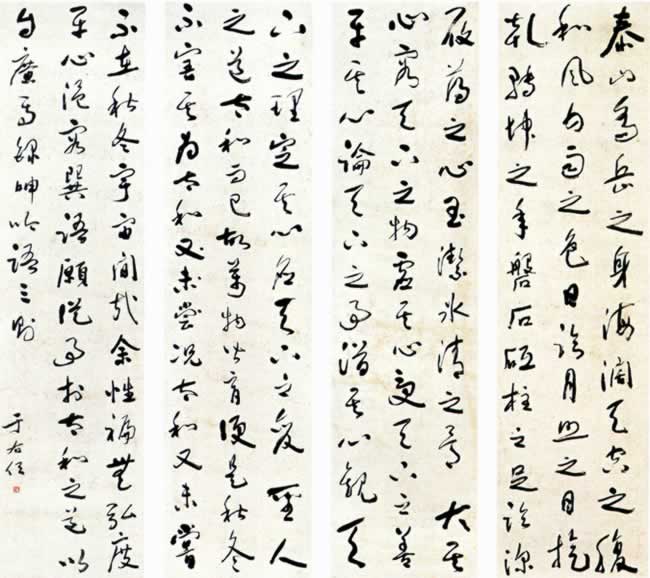 泰山喬岳之身海闊天空之腹
和風甘雨之色日臨月照之目旋
乾轉坤之手磐石砥柱之足臨深
履薄之心玉潔冰清之骨 大其
心容天下之物虛其心受天下之善
平其心論天下之事潛其心觀天
下之理定其心應天下之變 聖人
之道太和而已故萬物皆育便是秋冬
不害其為太和又未嘗況太和又未嘗
不在秋冬宇宙間哉余性褊無弘度
平心溫容巽語願從事於太和之道以
自廣焉錄呻吟語三則
于右任